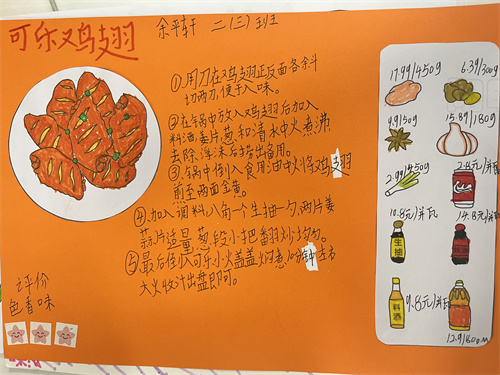 可乐鸡翅
余平轩 二(三)班
①用刀在鸡翅正反面各斜
切两刀,便于入味。
②在锅中放入鸡翅后加入
料酒姜片葱和清水中火煮沸
去除浮沫后捞出备用。
③锅中倒入食用油中火将鸡翅
煎至两面金黄。
④加入调料八角一个生抽一勺,两片姜
蒜片适量葱段小把翻炒均匀。
⑤最后倒入可乐小火盖盖焖煮10分钟左右
大火收汁出盘即可。
评价
色香味
17.99/450g
6.39/300g
4.9/50g
15.89/180g
2.99/450g
2.8元/瓶
10.8元/瓶
14.8元/瓶
生抽
9.8元/瓶
料酒
12.9/800m